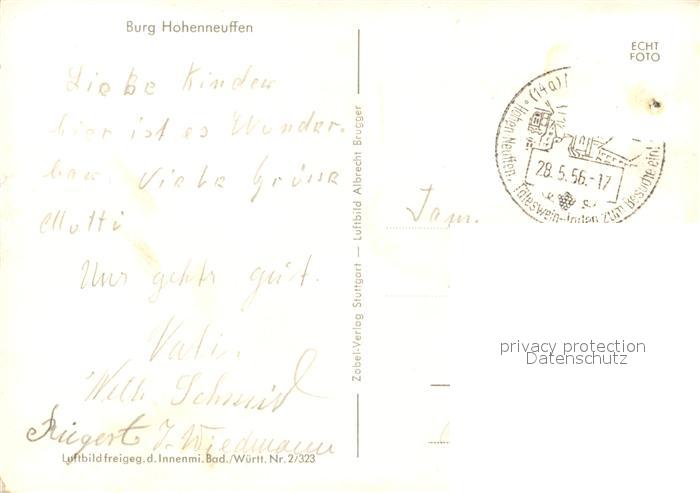 Burg Hohenneuffen
ECHT
FOTO
Liebe Kinder
hier ist es Wunder-
bar. Viele Grüsse
Mutti
Uns gehts gut.
Vati.
Wilh. Schmid
Riegert J. Wiedmann
Luftbild freigeg. d. Innenmi. Bad./Württ. Nr. 2/323
Zobel-Verlag Stuttgart — Luftbild Albrecht Brugger
(14a)
Hohen Neuffen
Täleswein laden zum Besuche ein!
28.5.56.-17
Fam.
privacy protection
Datenschutz